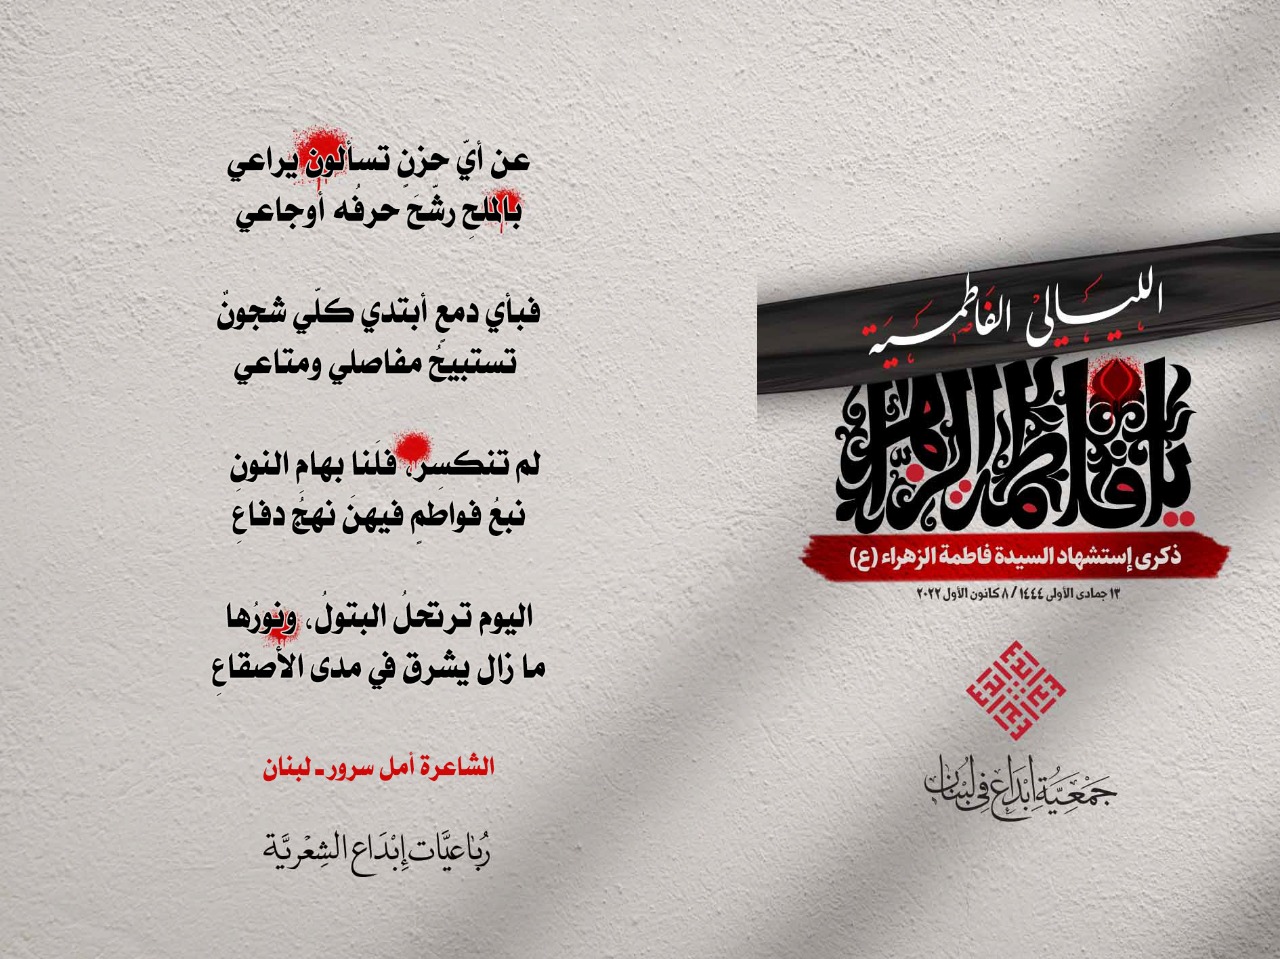 الليالي الفاطمية
يا فاطمة الزهراء
ذكرى إستشهاد السيدة فاطمة الزهراء (ع)
١٣ جمادى الأولى ١٤٤٤ / ٨ كانون الأول ٢٠٢٢
إبداع
جَمْعِيَّةُ إبْدَاع فِي لُبْنَان
عن أيّ حزنٍ تسألون يراعي
بالملحِ رشّحَ حرفُه أوجاعي
فبأي دمعٍ أبتدي كلّي شجونٌ
تستبيحُ مفاصلي ومتاعي
لم تنكسِر، فلَنا بهامِ النونِ
نبعُ فواطمٍ فيهنَ نهجُ دفاعِ
اليوم ترتحلُ البتولُ، ونورُها
ما زال يشرق في مدى الأصقاعِ
الشاعرة أمل سرور ـ لبنان
رُبَاعيَّات إبْدَاع الشِعْريَّة